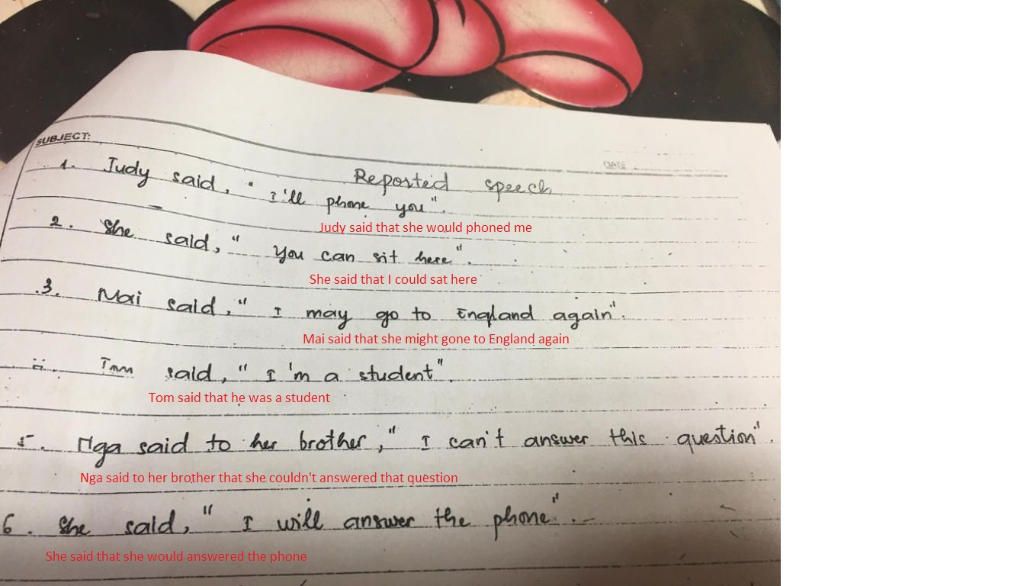 SUBJECT:
DATE
Reported speech
1. Judy said, " I'll phone you".
Judy said that she would phoned me
2. She said, " you can sit here".
She said that I could sat here
3. Mai said, " I may go to England again".
Mai said that she might gone to England again
Tom said, " I'm a student".
Tom said that he was a student
5. Nga said to her brother, " I can't answer this question".
Nga said to her brother that she couldn't answered that question
6. She said, " I will answer the phone".
She said that she would answered the phone